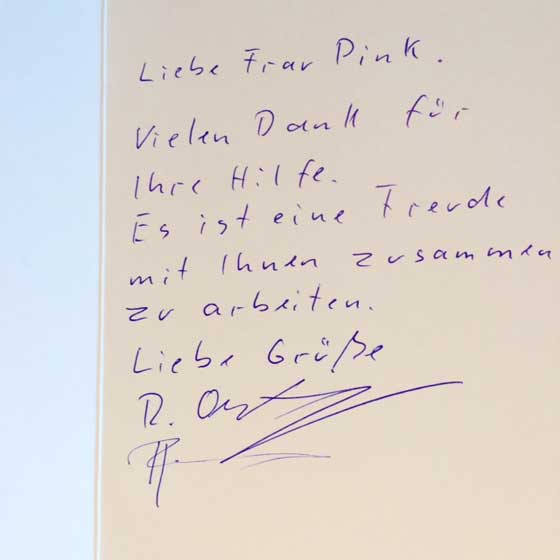 Liebe Frau Pink.
Vielen Dank für
Ihre Hilfe.
Es ist eine Freude
mit Ihnen zusammen
zu arbeiten.
Liebe Grüße